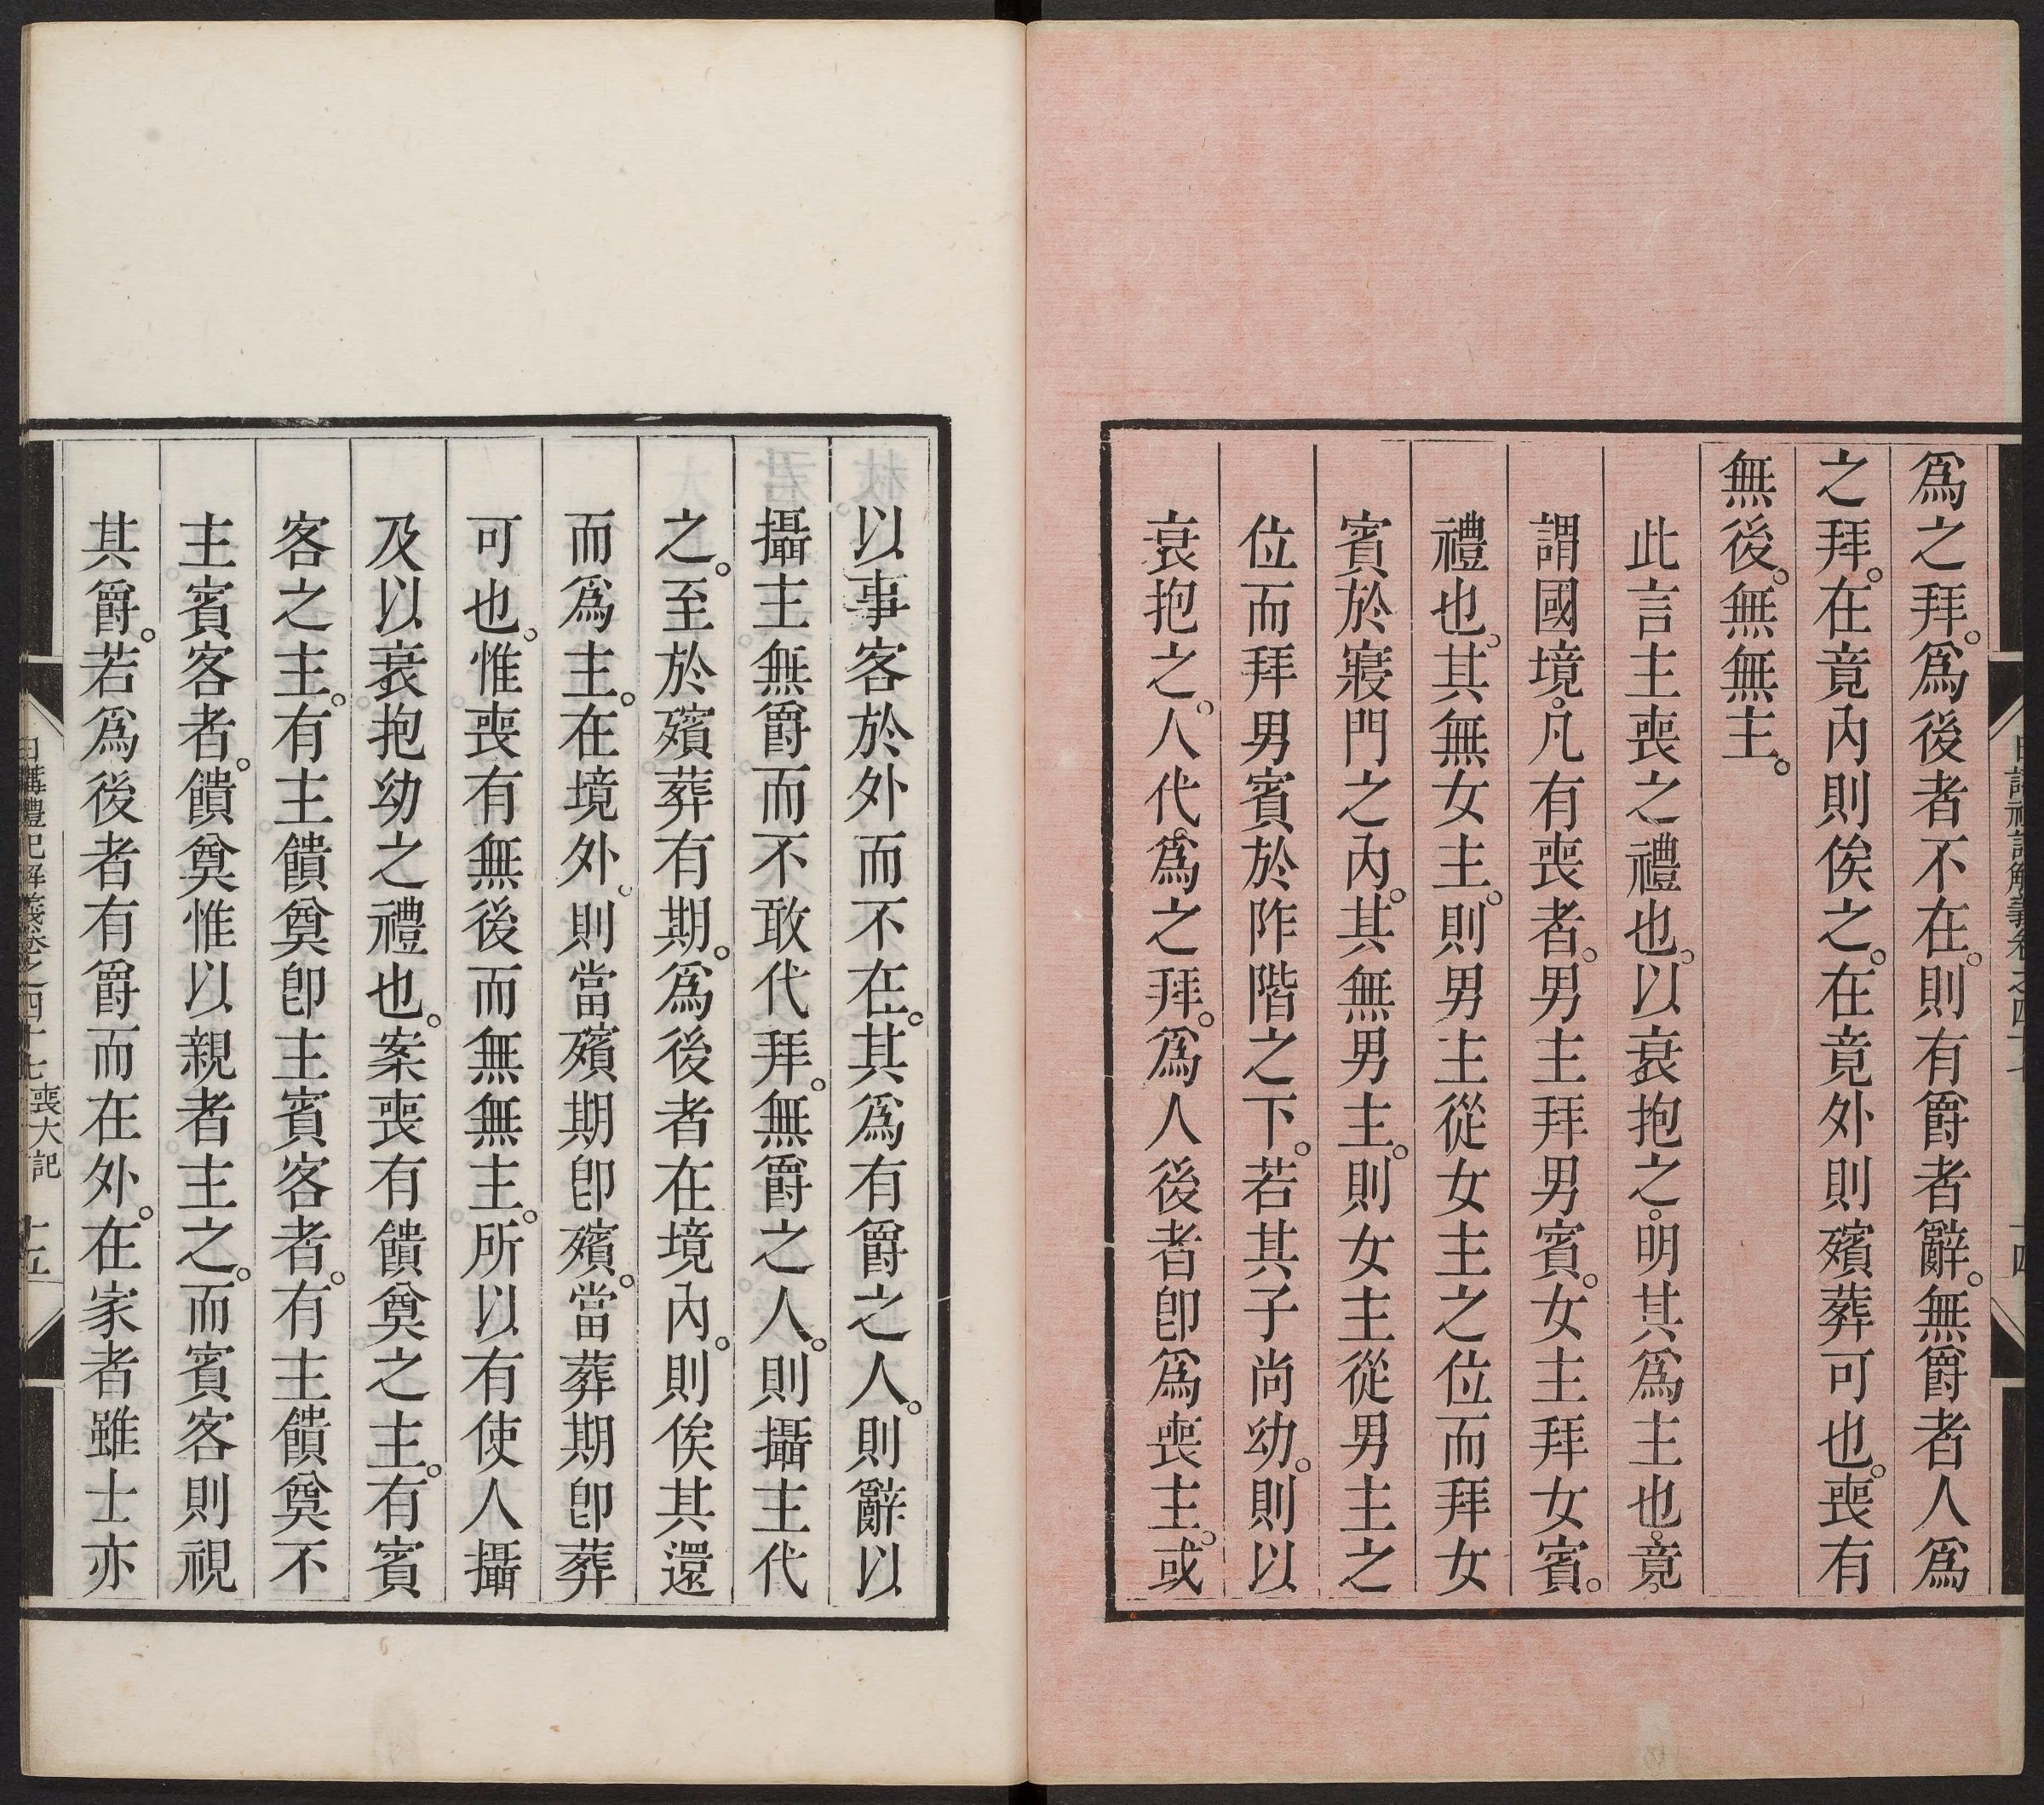 爲之拜。爲後者不在。則有爵者辭。無爵者人爲
之拜。在竟內則俟之。在竟外則殯葬可也。喪有
無後。無無主。
此言主喪之禮也。以衰抱之。明其爲主也。竟。
謂國境。凡有喪者。男主拜男賓。女主拜女賓。
禮也。其無女主。則男主從女主之位而拜女
賓於寢門之內。其無男主。則女主從男主之
位而拜男賓於阼階之下。若其子尚幼。則以
衰抱之。人代爲之拜。爲人後者卽爲喪主。或
以事客於外而不在。其爲有爵之人。則辭以
攝主無爵而不敢代拜。無爵之人。則攝主代
之。至於殯葬有期。爲後者在境內。則俟其還
而爲主。在境外。則當殯期卽殯。當葬期卽葬
可也。惟喪有無後而無無主。所以有使人攝
及以衰抱幼之禮也。案喪有饋奠之主。有賓
客之主。有主饋奠卽主賓客者。有主饋奠不
主賓客者。饋奠惟以親者主之。而賓客則視
其爵。若爲後者有爵而在外。在家者雖士亦
日講禮記解義卷之四十七 喪大記 十五